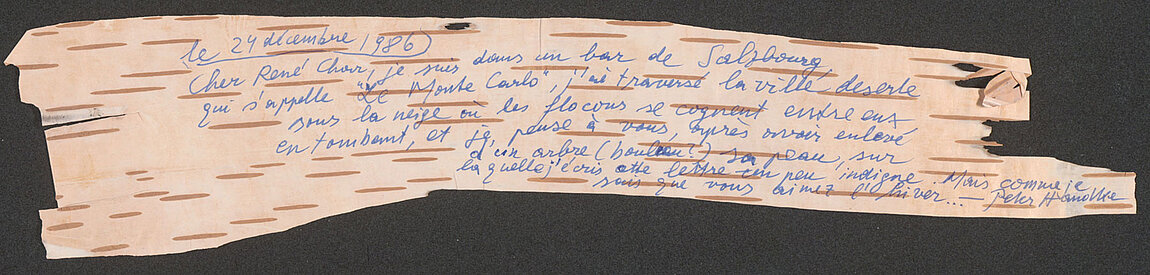 le 24 décembre 1986)
Cher René Char, je suis dans un bar de Salzbourg,
qui s'appelle "Le Monte Carlo", j'ai traversé la ville deserte
sous la neige où les flocons se cognent entre eux
en tombant, et je pense à vous, après avoir enlevé
d'un arbre (bouleau?) sa peau, sur
laquelle j'écris cette lettre un peu indigne. Mais comme je
sais que vous aimez l'hiver... — Peter Handke